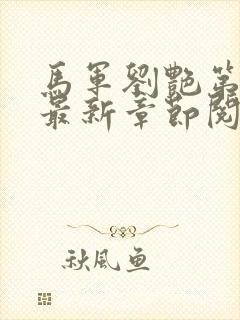 馬軍劉艷第
最新章節閱
秋風魚